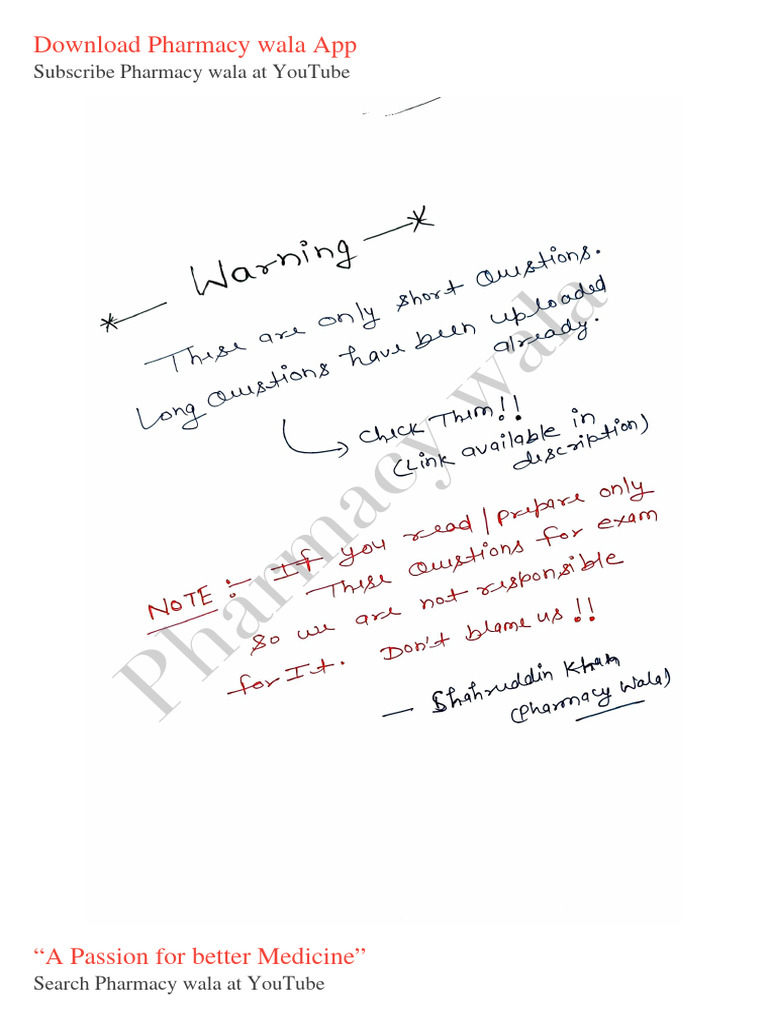 Download Pharmacy wala App
Subscribe Pharmacy wala at YouTube
*— Warning —*
These are only short Questions.
Long Questions have been uploaded
already.
↳ Check Them!!
(Link available in
description)
NOTE :- If you read/prepare only
These Questions for exam
So we are not responsible
for It. Don't blame us!!
— Shahruddin Khan
(Pharmacy Wala)
Pharmacy wala
“A Passion for better Medicine”
Search Pharmacy wala at YouTube